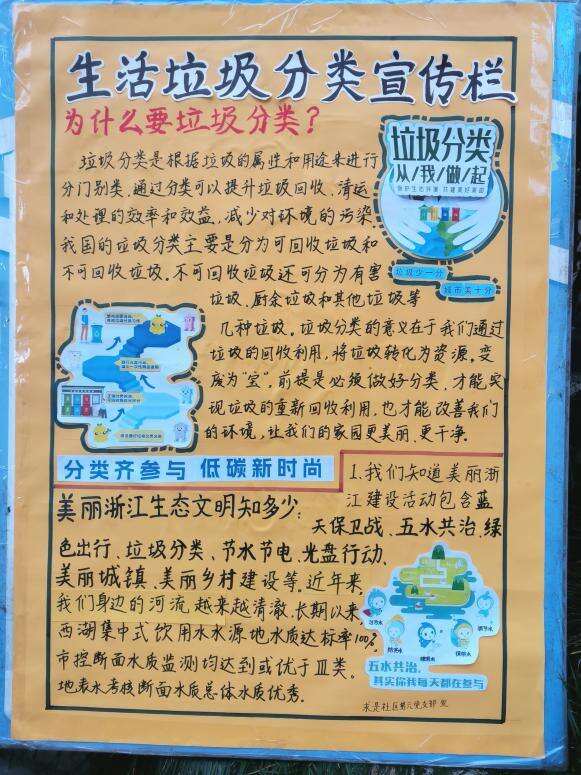 生活垃圾分类宣传栏
为什么要垃圾分类?
垃圾分类是根据垃圾的属性和用途来进行
分门别类,通过分类可以提升垃圾回收、清运
和处理的效率和效益,减少对环境的污染,
我国的垃圾分类主要是分为可回收垃圾和
不可回收垃圾。不可回收垃圾还可分为有害
垃圾、厨余垃圾和其他垃圾等
几种垃圾。垃圾分类的意义在于我们通过
垃圾的回收利用,将垃圾转化为资源。变
废为“宝”。前提是必须做好分类,才能实
现垃圾的重新回收利用,也才能改善我们
的环境,让我们的家园更美丽、更干净。
垃圾分类
从/我/做/起
垃圾少一分
城市美十分
分类齐参与 低碳新时尚
美丽浙江生态文明知多少:
1.我们知道美丽浙
江建设活动包含蓝
天保卫战、五水共治、绿
色出行、垃圾分类、节水节电、光盘行动、
美丽城镇、美丽乡村建设等。近年来,
我们身边的河流越来越清澈,长期以来,
西湖集中式饮用水水源地水质达标率100%,
市控断面水质监测均达到或优于Ⅲ类。
地表水考核断面水质总体水质优秀。
治污水
防洪水
排涝水
保供水
抓节水
五水共治,
其实你我每天都在参与
求是社区第六党支部 宣